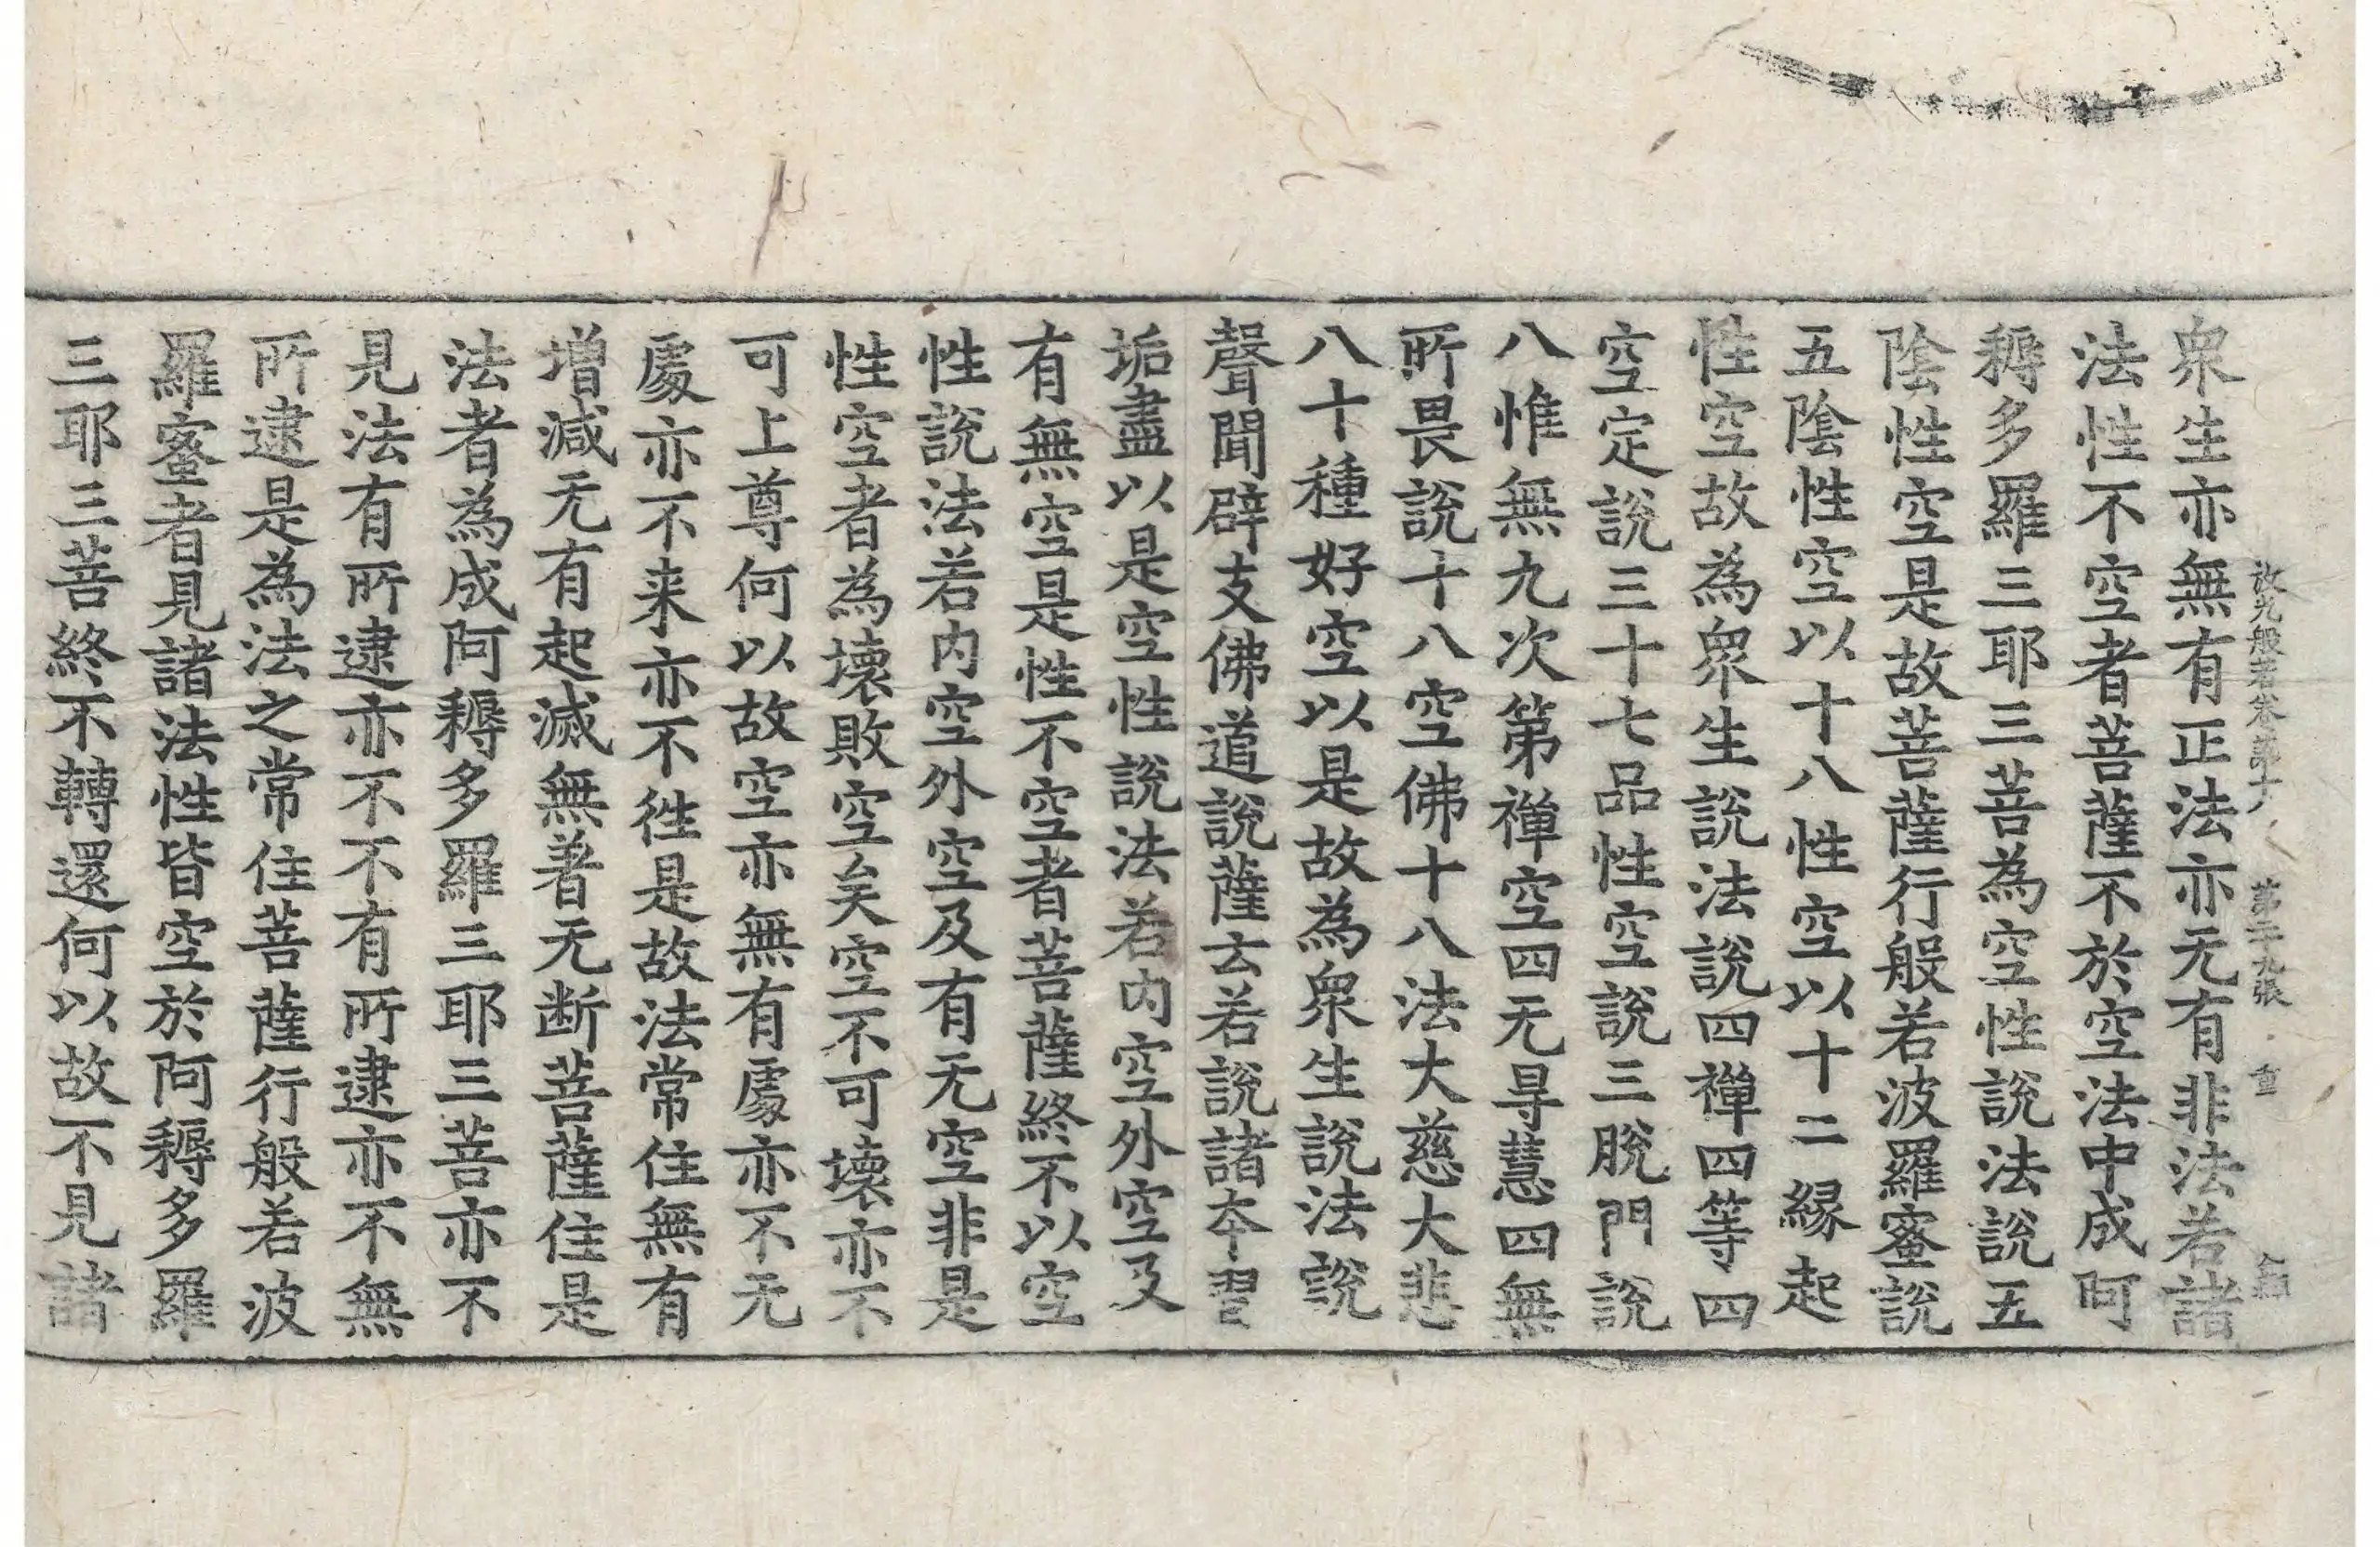 放光般若卷第十八 第二十九張 重
衆生亦無有正法亦无有非法若諸
法性不空者菩薩不於空法中成阿
耨多羅三耶三菩為空性說法說五
陰性空是故菩薩行般若波羅蜜說
五陰性空以十八性空以十二緣起
性空故為衆生說法說四禪四等四
空定說三十七品性空說三脫門說
八惟無九次第禪空四无㝵慧四無
所畏說十八空佛十八法大慈大悲
八十種好空以是故為衆生說法說
聲聞辟支佛道說薩云若說諸夲習
垢盡以是空性說法若内空外空及
有無空是性不空者菩薩終不以空
性說法若内空外空及有无空非是
性空者為壞敗空矣空不可壞亦不
可上尊何以故空亦無有處亦不无
處亦不来亦不徃是故法常住無有
增减无有起滅無著无断菩薩住是
法者為成阿耨多羅三耶三菩亦不
見法有所逮亦不不有所逮亦不無
所逮是為法之常住菩薩行般若波
羅蜜者見諸法性皆空於阿耨多羅
三耶三菩終不轉還何以故不見諸